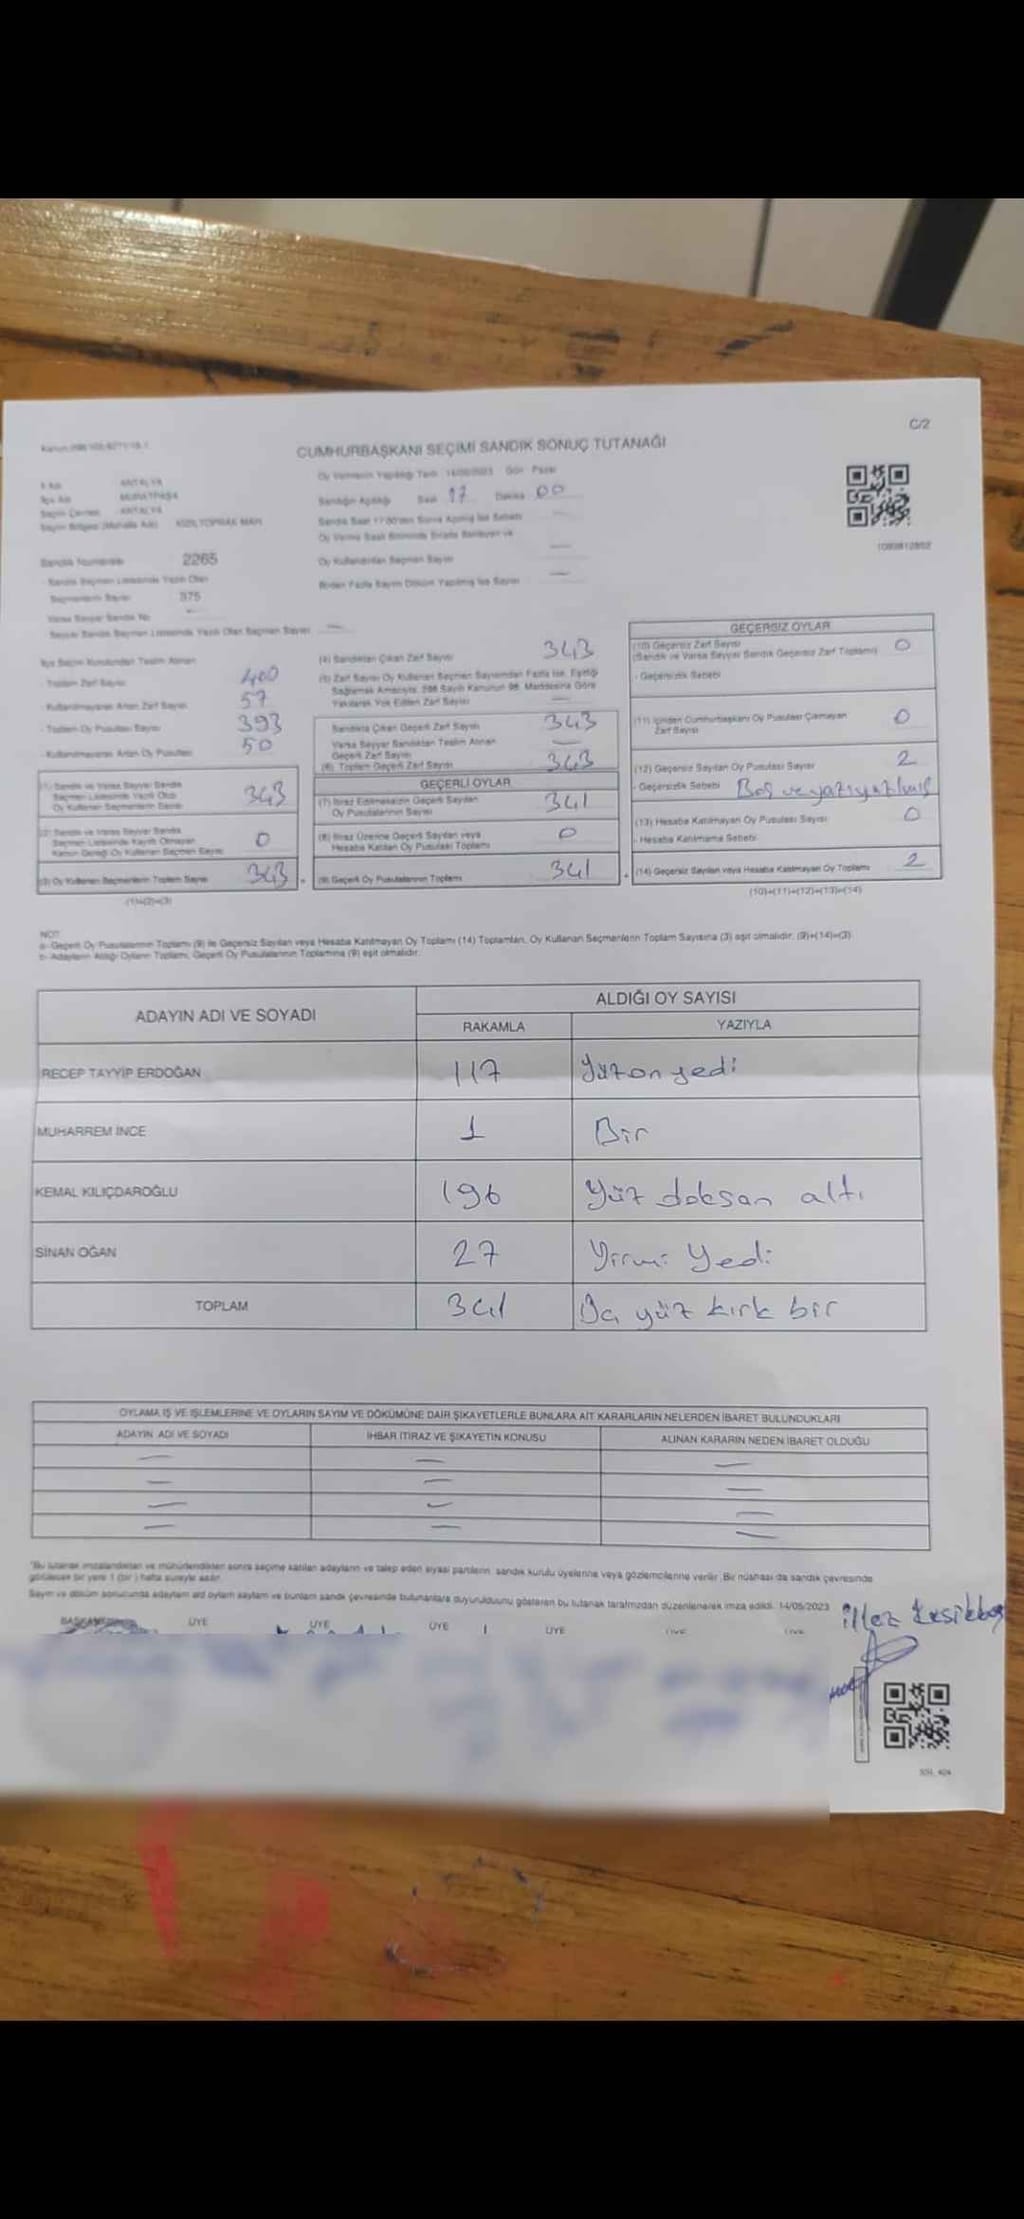 C/2
CUMHURBAŞKANI SEÇİMİ SANDIK SONUÇ TUTANAĞI
Oy Vermenin Yapıldığı Tarih 14/05/2023 Gün Pazar
İl Adı ANTALYA
İlçe Adı MURATPAŞA
Seçim Çevresi ANTALYA
Sandığın Açıldığı Saat 17 Dakika 00
Seçim Bölgesi (Mahalle Adı) KIZILTOPRAK MAH.
Sandık Numarası 2265
Oy Kullandırılan Seçmen Sayısı
Sandık Seçmen Listesinde Yazılı Olan
Seçmenlerin Sayısı 375
Birden Fazla Sayım Döküm Yapılmış İse Sayısı
Varsa Seyyar Sandık No
Seyyar Sandık Seçmen Listesinde Yazılı Olan Seçmen Sayısı
İlçe Seçim Kurulundan Teslim Alınan
- Toplam Zarf Sayısı 400
- Kullanılmayarak Artan Zarf Sayısı 57
- Toplam Oy Pusulası Sayısı 393
- Kullanılmayarak Artan Oy Pusulası 50
(1) Sandık ve Varsa Seyyar Sandık
Seçmen Listesinde Yazılı Olup
Oy Kullanan Seçmenlerin Sayısı 343
(2) Sandık ve Varsa Seyyar Sandık
Seçmen Listesinde Kayıtlı Olmayan
Kanun Gereği Oy Kullanan Seçmen Sayısı 0
(3) Oy Kullanan Seçmenlerin Toplam Sayısı 343
(1)+(2)=(3)
(4) Sandıktan Çıkan Zarf Sayısı 343
(5) Zarf Sayısı Oy Kullanan Seçmen Sayısından Fazla İse, Eşitliği
Sağlamak Amacıyla, 298 Sayılı Kanunun 98. Maddesine Göre
Yakılarak Yok Edilen Zarf Sayısı
Sandıkta Çıkan Geçerli Zarf Sayısı 343
Varsa Seyyar Sandıktan Teslim Alınan
Geçerli Zarf Sayısı
(6) Toplam Geçerli Zarf Sayısı 343
GEÇERLİ OYLAR
(7) İtiraz Edilmeksizin Geçerli Sayılan
Oy Pusulalarının Sayısı 341
(8) İtiraz Üzerine Geçerli Sayılan veya
Hesaba Katılan Oy Pusulası Toplamı 0
(9) Geçerli Oy Pusulalarının Toplamı 341
GEÇERSİZ OYLAR
(10) Geçersiz Zarf Sayısı 0
(Sandık ve Varsa Seyyar Sandık Geçersiz Zarf Toplamı)
- Geçersizlik Sebebi
(11) İçinden Cumhurbaşkanı Oy Pusulası Çıkmayan
Zarf Sayısı 0
(12) Geçersiz Sayılan Oy Pusulası Sayısı 2
- Geçersizlik Sebebi Boş ve yazıyazılmış
(13) Hesaba Katılmayan Oy Pusulası Sayısı 0
- Hesaba Katılmama Sebebi
(14) Geçersiz Sayılan veya Hesaba Katılmayan Oy Toplamı 2
(10)+(11)+(12)+(13)=(14)
NOT
a- Geçerli Oy Pusulalarının Toplamı (9) ile Geçersiz Sayılan veya Hesaba Katılmayan Oy Toplamı (14) Toplamları, Oy Kullanan Seçmenlerin Toplam Sayısına (3) eşit olmalıdır. (9)+(14)=(3)
b- Adayların Aldığı Oyların Toplamı, Geçerli Oy Pusulalarının Toplamına (9) eşit olmalıdır.
ADAYIN ADI VE SOYADI
ALDIĞI OY SAYISI
RAKAMLA YAZIYLA
RECEP TAYYİP ERDOĞAN 117 Yüzonyedi
MUHARREM İNCE 1 Bir
KEMAL KILIÇDAROĞLU 196 Yüz doksan altı
SİNAN OĞAN 27 Yirmi Yedi
TOPLAM 341 Üç yüz kırk bir
OYLAMA İŞ VE İŞLEMLERİNE VE OYLARIN SAYIM VE DÖKÜMÜNE DAİR ŞİKAYETLERLE BUNLARA AİT KARARLARIN NELERDEN İBARET BULUNDUKLARI
ADAYIN ADI VE SOYADI İHBAR İTİRAZ VE ŞİKAYETİN KONUSU ALINAN KARARIN NEDEN İBARET OLDUĞU
"Bu tutanak imzalandıktan ve mühürlendikten sonra seçime katılan adayların ve talep eden siyasi partilerin, sandık kurulu üyelerine veya gözlemcilerine verilir. Bir nüshası da sandık çevresinde
görülecek bir yere 1 (bir) hafta süreyle asılır.
Sayım ve döküm sonucunda adayların aldı oyların sayıları ve bunların sandık çevresinde bulunanlara duyurulduunu gösteren bu tutanak tarafımızdan düzenlenerek imza edildi. 14/05/2023
BAŞKAN ÜYE ÜYE ÜYE ÜYE ÜYE ÜYE